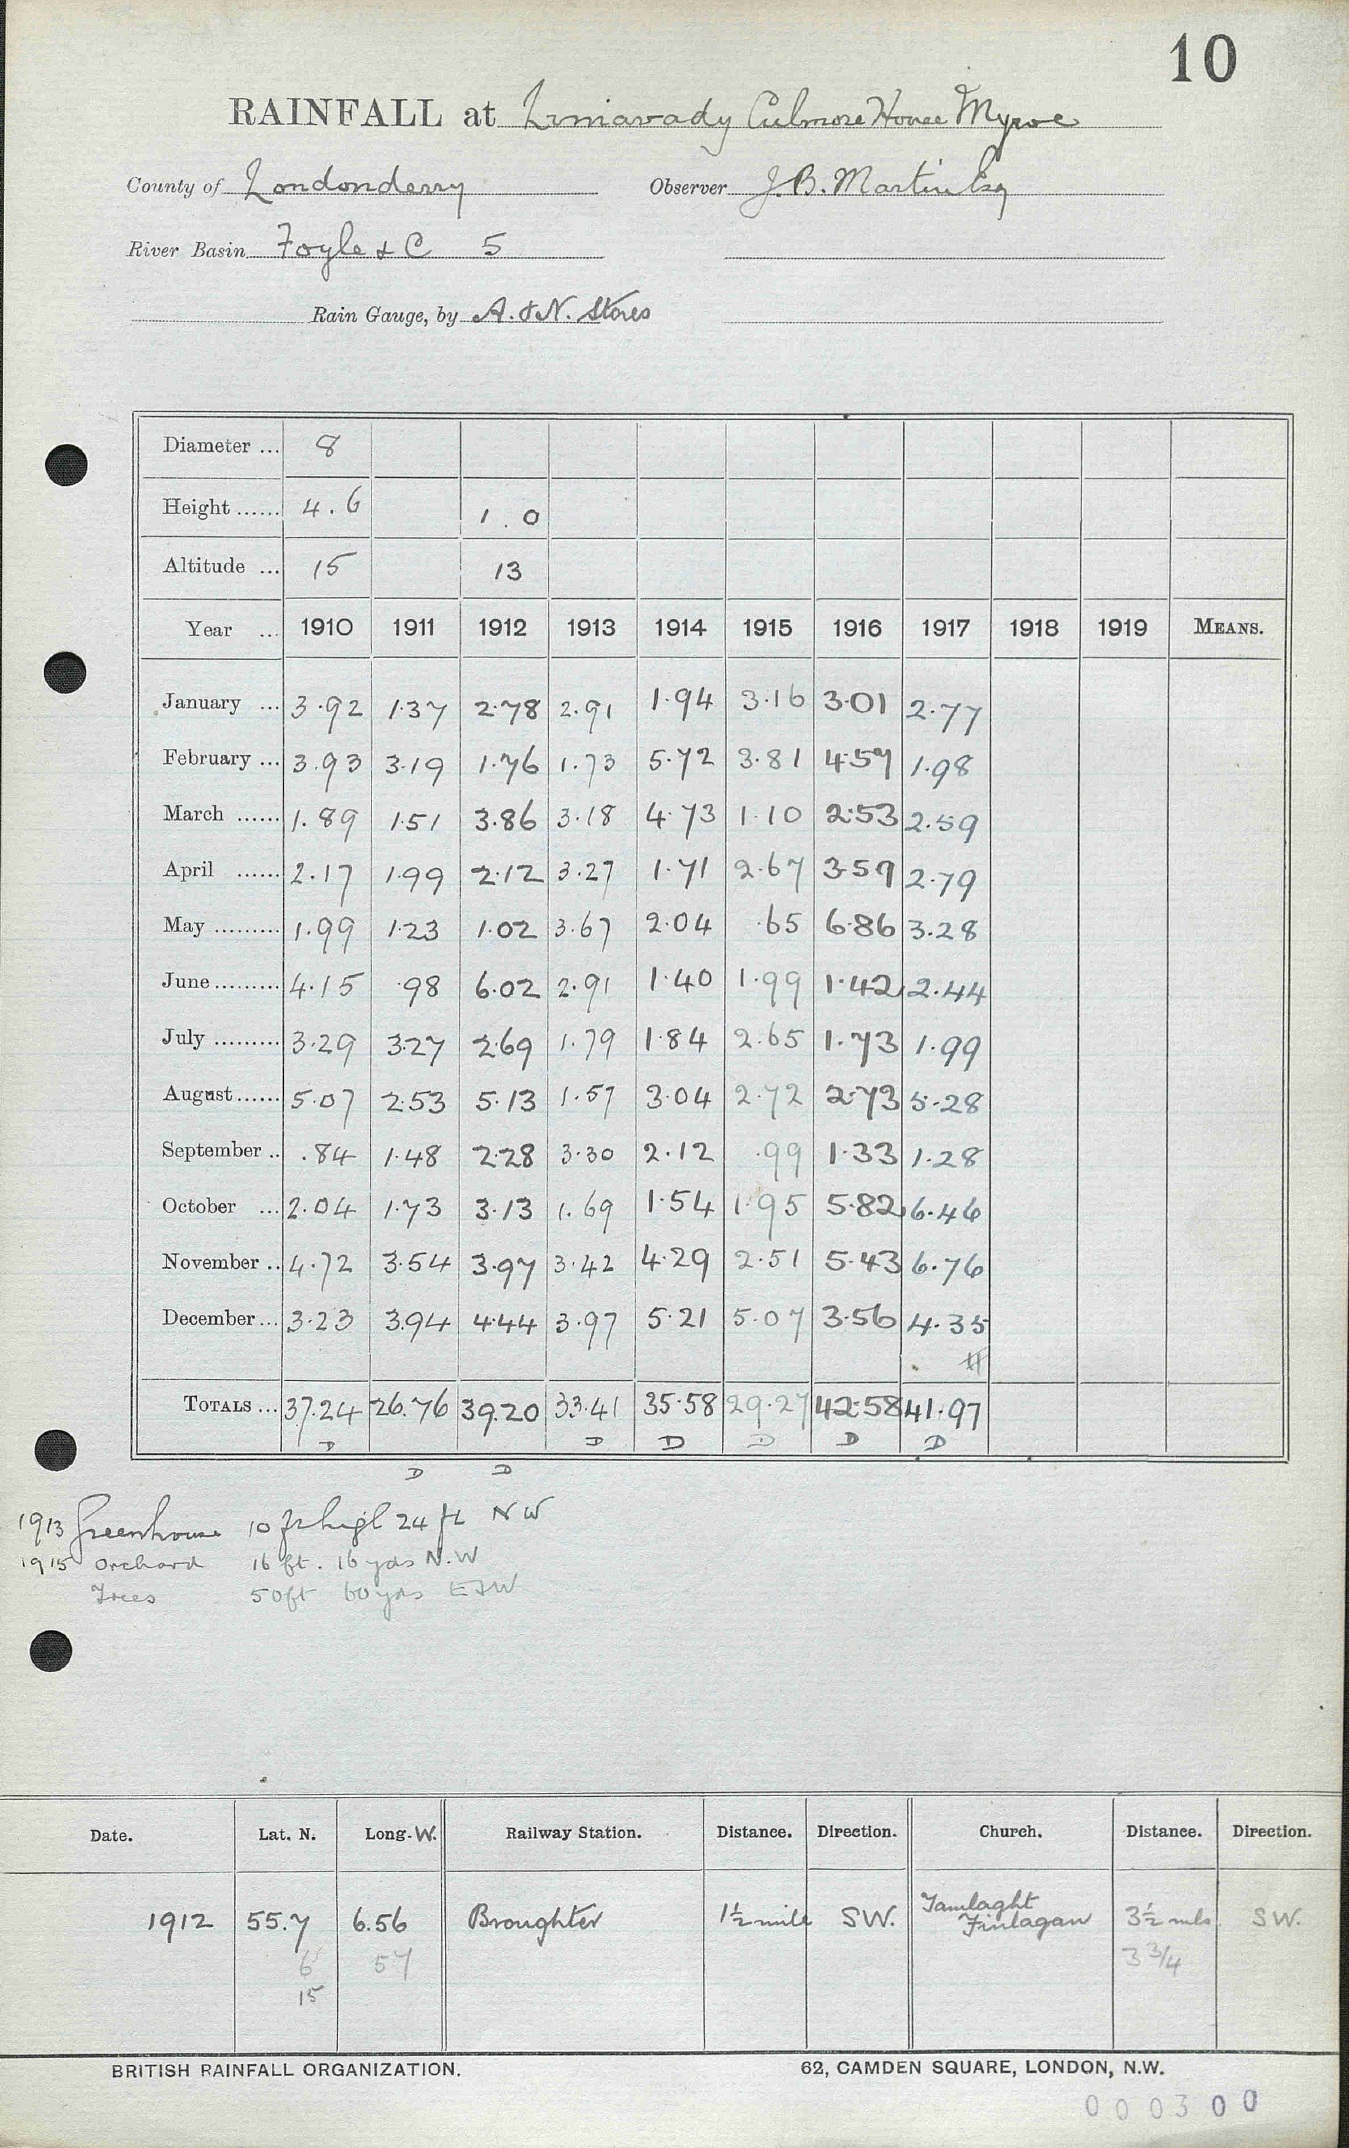 10
RAINFALL at Limavady Culmore House Myroe
County of Londonderry Observer J.B. Martin Esq
River Basin Foyle & C 5
Rain Gauge, by A. & N. Stores
Diameter ... 8
Height ...... 4.6 1.0
Altitude ... 15 13
Year ... 1910 1911 1912 1913 1914 1915 1916 1917 1918 1919 MEANS.
January ... 3.92 1.37 2.78 2.91 1.94 3.16 3.01 2.77
February ... 3.93 3.19 1.76 1.73 5.72 3.81 4.57 1.98
March ...... 1.89 1.51 3.86 3.18 4.73 1.10 2.53 2.59
April ...... 2.17 1.99 2.12 3.27 1.71 2.67 3.59 2.79
May ......... 1.99 1.23 1.02 3.67 2.04 .65 6.86 3.28
June ......... 4.15 .98 6.02 2.91 1.40 1.99 1.42 2.44
July ......... 3.29 3.27 2.69 1.79 1.84 2.65 1.73 1.99
August ...... 5.07 2.53 5.13 1.57 3.04 2.72 2.73 5.28
September .. .84 1.48 2.28 3.30 2.12 .99 1.33 1.28
October ... 2.04 1.73 3.13 1.69 1.54 1.95 5.82 6.46
November .. 4.72 3.54 3.97 3.42 4.29 2.51 5.43 6.76
December ... 3.23 3.94 4.44 3.97 5.21 5.07 3.56 4.35
TOTALS ... 37.24 26.76 39.20 33.41 35.58 29.27 42.58 41.97
D D D D D D
D D
1913 Greenhouse 10 ft high 24 ft NW
1915 Orchard 16 ft. 16 yds N.W
Trees 50ft 60 yds E & W
Date. Lat. N. Long. W. Railway Station. Distance. Direction. Church. Distance. Direction.
1912 55.7 6.56 Broughter 1½ mile SW. Tamlaght Finlagan 3½ mls SW.
6 57 3 3/4
15
BRITISH RAINFALL ORGANIZATION. 62, CAMDEN SQUARE, LONDON, N.W.
000300